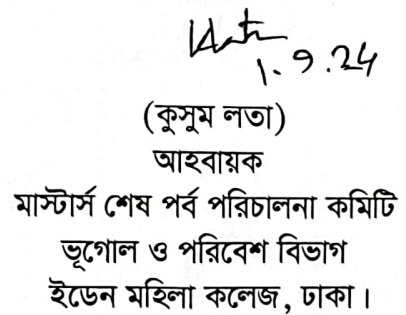 ১.৯.২৪
(কুসুম লতা)
আহবায়ক
মাস্টার্স শেষ পর্ব পরিচালনা কমিটি
ভূগোল ও পরিবেশ বিভাগ
ইডেন মহিলা কলেজ, ঢাকা।